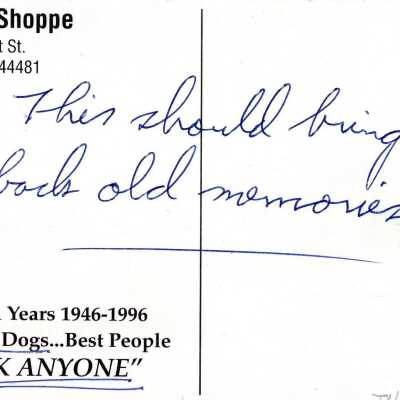 Shoppe
t St.
44481
This should bring
back old memories
Years 1946-1996
Dogs...Best People
K ANYONE”